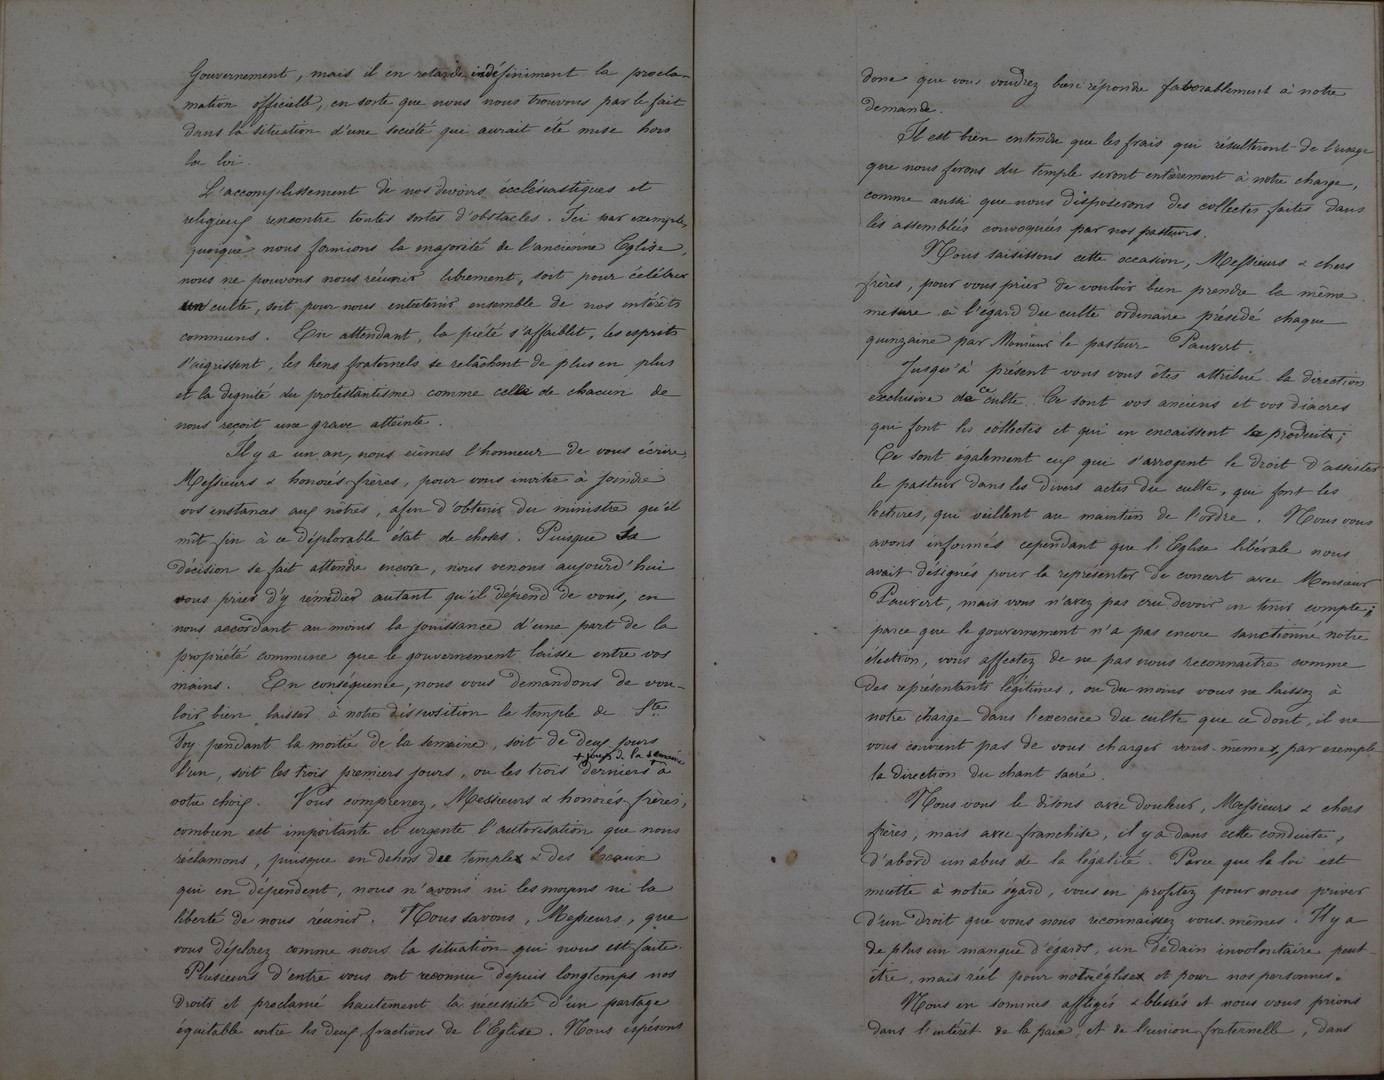 Gouvernement, mais il en retarde indéfiniment la procla-
mation officielle, en sorte que nous nous trouvons par le fait
dans la situation d'une société qui aurait été mise hors
la loi.
L'accomplissement de nos devoirs ecclésiastiques et
religieux rencontre toutes sortes d'obstacles. Ici par exemple,
quoique nous formions la majorité de l'ancienne Eglise,
nous ne pouvons nous réunir librement, soit pour célébrer
un culte, soit pour nous entretenir ensemble de nos intérêts
communs. En attendant, la piété s'affaiblit, les esprits
s'aigrissent, les liens fraternels se relâchent de plus en plus
et la dignité du protestantisme comme celle de chacun de
nous reçoit une grave atteinte.
Il y a un an, nous eûmes l'honneur de vous écrire,
Messieurs & honorés frères, pour vous inviter à joindre
vos instances aux nôtres, afin d'obtenir du ministre qu'il
mît fin à ce déplorable état de choses. Puisque sa
décision se fait attendre encore, nous venons aujourd'hui
vous prier d'y remédier autant qu'il dépend de vous, en
nous accordant au moins la jouissance d'une part de la
propriété commune que le gouvernement laisse entre vos
mains. En conséquence, nous vous demandons de vou-
loir bien laisser à notre disposition le temple de Ste
Foy pendant la moitié de la semaine, soit de deux jours
+ jours de la semaine
l'un, soit les trois premiers jours, ou les trois derniers + à
votre choix. Vous comprenez, Messieurs & honorés frères,
combien est importante et urgente l'autorisation que nous
réclamons, puisque en dehors des temples & des locaux
qui en dépendent, nous n'avons ni les moyens ni la
liberté de nous réunir. Nous savons, Messieurs, que
vous déplorez comme nous la situation qui nous est faite.
Plusieurs d'entre vous ont reconnu depuis longtemps nos
droits et proclamé hautement la nécessité d'un partage
équitable entre les deux fractions de l'Eglise. Nous espérons
donc que vous voudrez bien répondre favorablement à notre
demande.
Il est bien entendu que les frais qui résulteront de l'usage
que nous ferons du temple seront entièrement à notre charge,
comme aussi que nous disposerons des collectes faites dans
les assemblées convoquées par nos pasteurs.
Nous saisissons cette occasion, Messieurs & chers
frères, pour vous prier de vouloir bien prendre la même
mesure à l'égard du culte ordinaire présidé chaque
quinzaine par Monsieur le pasteur Pauvert.
Jusqu'à présent vous vous êtes attribué la direction
exclusive de ce culte. Ce sont vos anciens et vos diacres
qui font les collectes et qui en encaissent le produit;
Ce sont également eux qui s'arrogent le droit d'assister
le pasteur dans les divers actes du culte, qui font les
lectures, qui veillent au maintien de l'ordre. Nous vous
avons informés cependant que l'Eglise libérale nous
avait désignés pour la représenter de concert avec Monsieur
Pauvert, mais vous n'avez pas cru devoir en tenir compte;
parce que le gouvernement n'a pas encore sanctionné notre
élection, vous affectez de ne pas nous reconnaître comme
des représentants légitimes, ou du moins vous ne laissez à
notre charge dans l'exercice du culte que ce dont, il ne
vous convient pas de vous charger vous-mêmes, par exemple
la direction du chant sacré.
Nous vous le disons avec douleur, Messieurs & chers
frères, mais avec franchise, il y a dans cette conduite,
d'abord un abus de la légalité. Parce que la loi est
muette à notre égard, vous en profitez pour nous priver
d'un droit que vous nous reconnaissez vous-mêmes. Il y a
de plus un manque d'égards, un dédain involontaire peut-
être, mais réel pour notre église et pour nos personnes.
Nous en sommes affligés & blessés et nous vous prions
dans l'intérêt de la paix, et de l'union fraternelle, dans